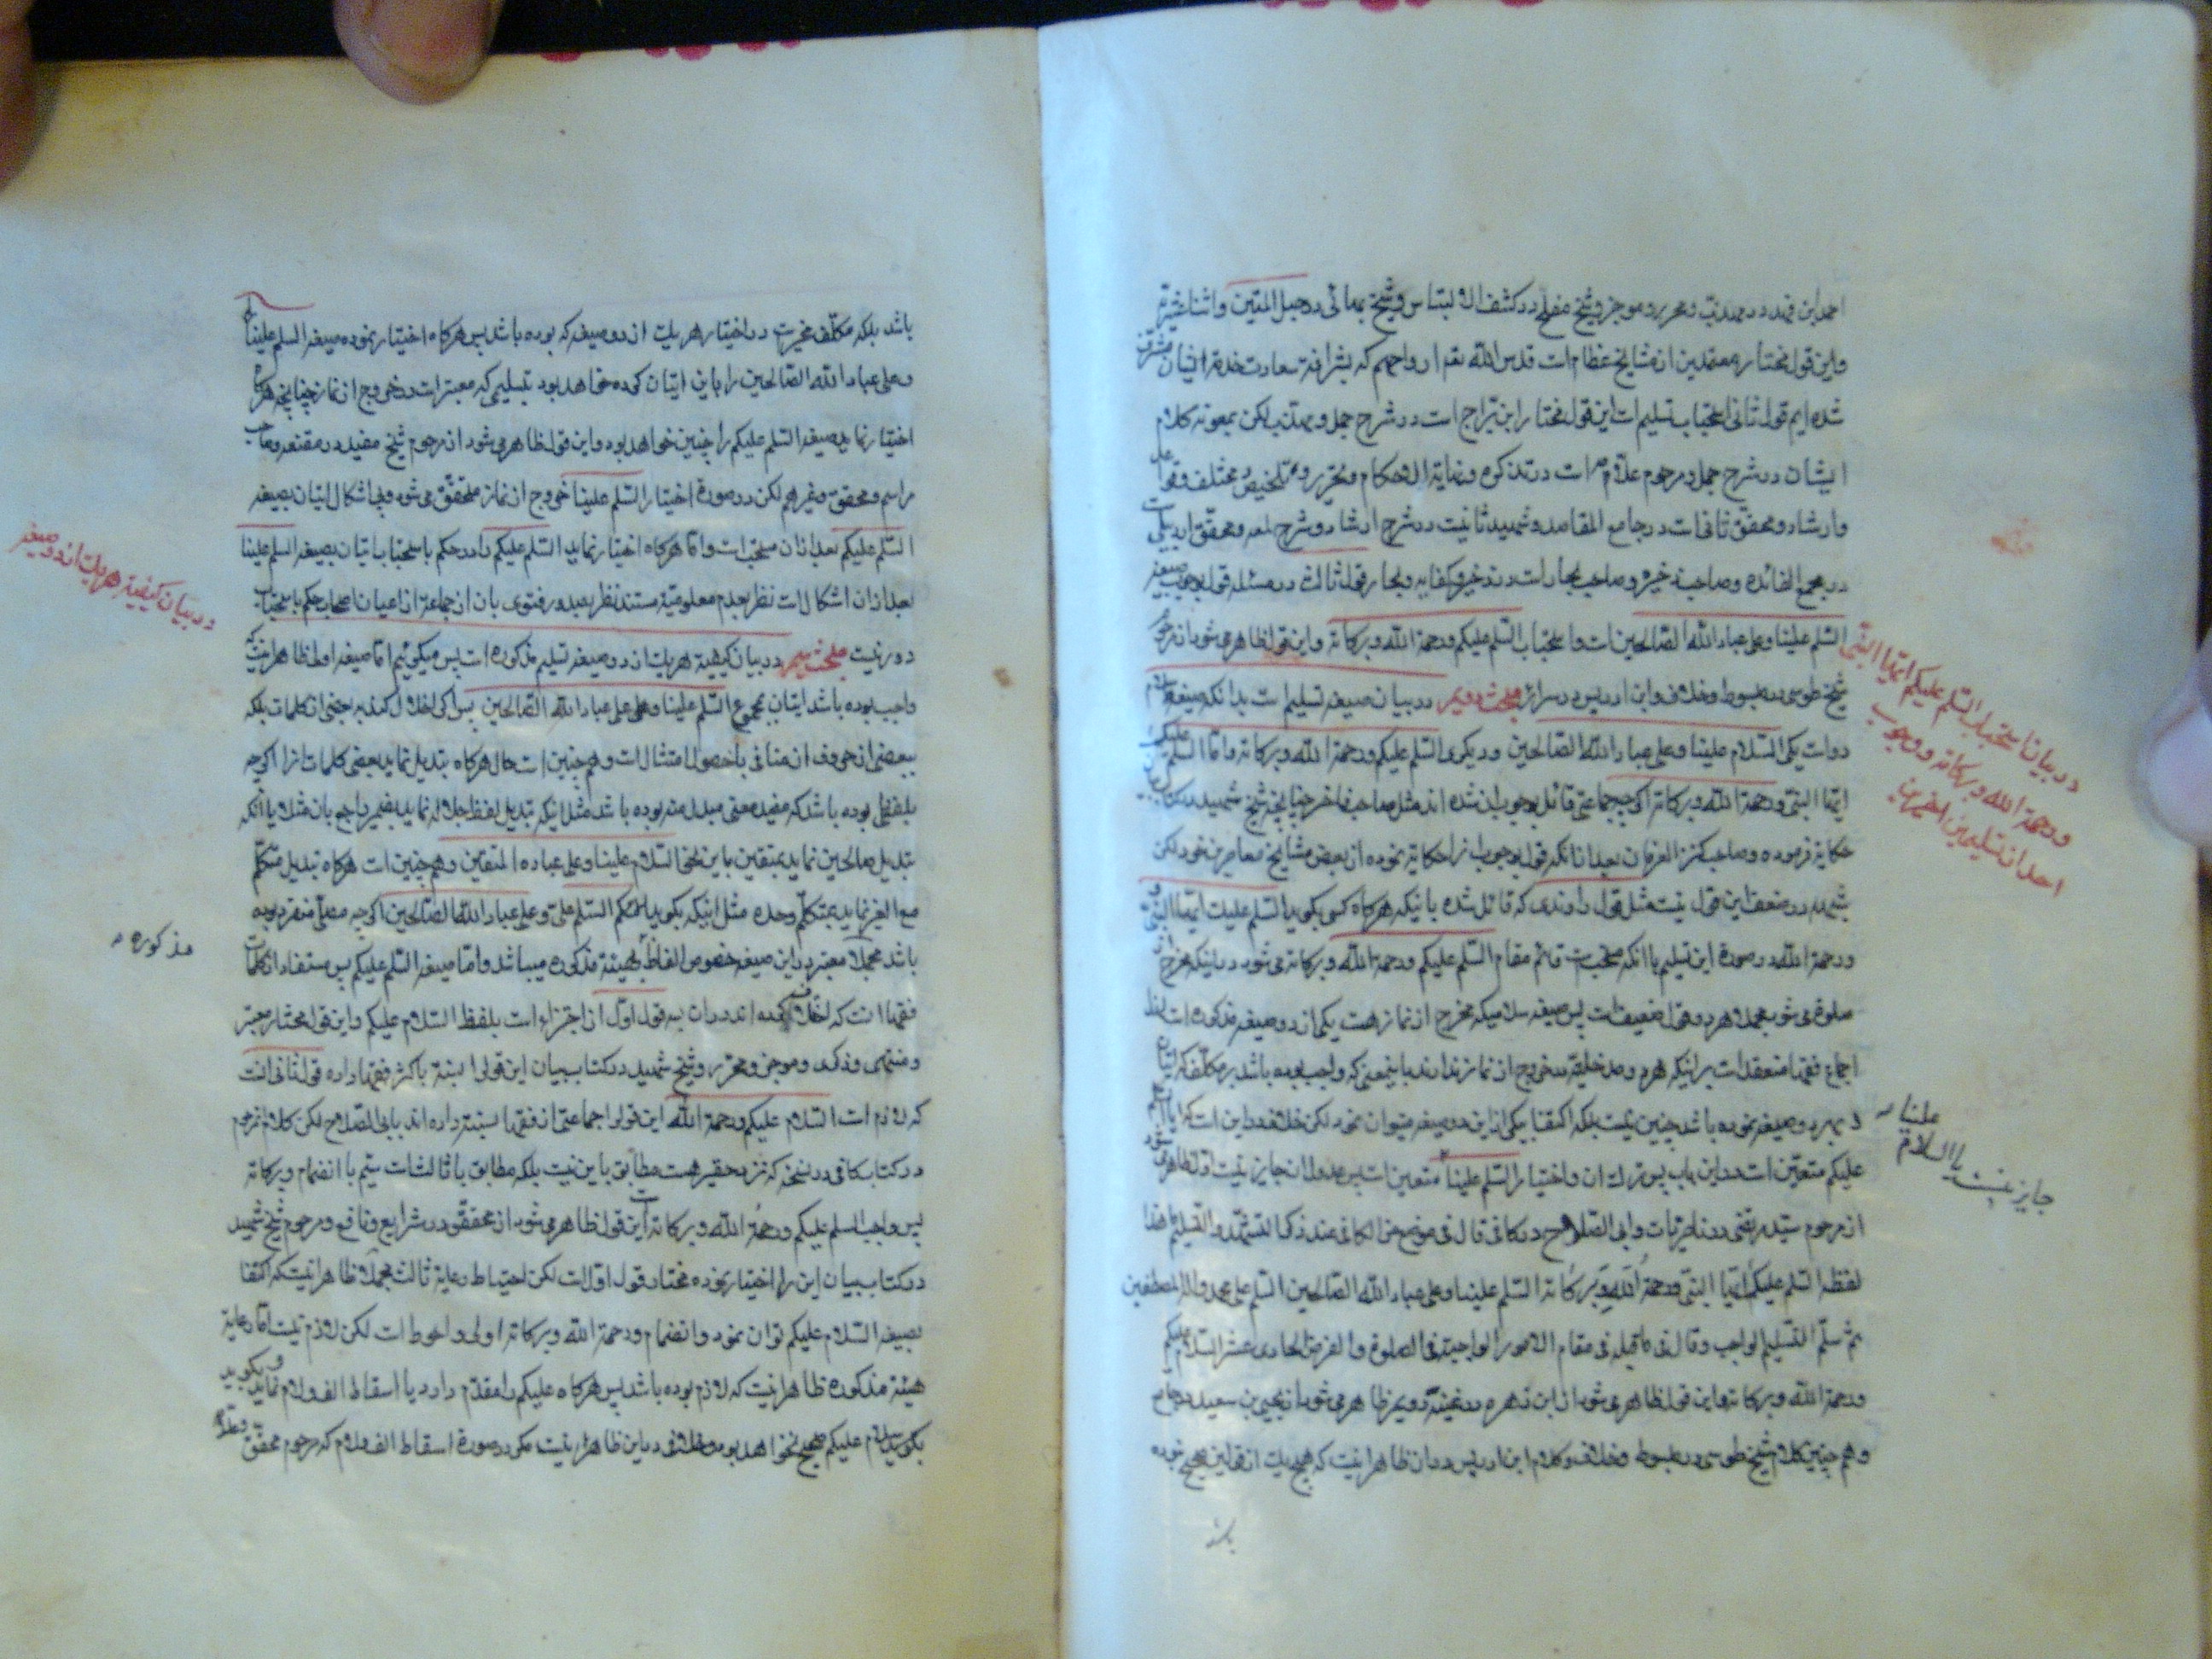 احمد ابن فهد در مهذب و محرر و موجز و شیخ مفلح در کشف الالتباس و شیخ بهائی در حبل المتین و اثنا عشریه
و این قول مختار معتمدین از مشایخ عظام است قدس الله تعم ارواحهم که بشرافة سعادت خدمة ایشان مشرف
شده ایم قول ثانی استحباب تسلیم است این قول مختار ابن براج است در شرح جمل و مهذب لکن بمعونه کلام
ایشان در شرح جمل و مرحوم علامه است در تذکره و نهایة الاحکام و تحریر و تلخیص و مختلف و قواعد
وارشاد و محقق ثانی است در جامع المقاصد و شهید ثانیست در شرح ارشاد و شرح لمعه و محقق اردبیلی است
در مجمع الفائده و صاحب ذخیره و صاحب بحار است در ذخیره و کفایه و بحار قول ثالث در مسئله قول بوجوب صیغه
السلم علینا و علی عباد الله الصالحین است و استحباب السلم علیکم و رحمة الله و برکاته و این قول ظاهر می شود از مرحوم
شیخ طوسی در مبسوط و خلاف و ابن ادریس در سرائر مبحث دویم در بیان صیغه تسلیم است بدانکه صیغه سلام
دو است یکی السلام علینا و علی عباد الله الصالحین و دیکری السلم علیکم و رحمة الله و برکاته و اما السلم علیک
ایها النبی و رحمة الله و برکاته اکرچه جماعتی قائل بوجوب ان شده اند مثل صاحب فاخر چنانچه شیخ شهید در کتاب بیان
حکایة فرموده و صاحب کنز العرفان بعد از آنکه قول بوجوب انرا حکایة نموده از بعض مشایخ معاصرین خود لکن
شبهه در ضعف این قول نیست مثل قول راوندی که قائل شده باینکه هرکاه کسی بکوید السلم علیک ایها النبی و
ورحمة الله در صورة این تسلیم با آنکه مستحب است قائم مقام السلم علیکم و رحمة الله و برکاته می شود در اینکه مخرج از
صلوة می شود مجملا هر دو قول ضعیف است پس صیغه سلامیکه مخرج از نماز هست یکی از دو صیغه مذکوره است لهذا
اجماع فقها منعقد است بر اینکه هر دو مدخلیة در خروج از نماز ندارند باینمعنی که واجب بوده باشد بر مکلف که اتیان
بهر دو صیغه نموده باشد چنین نیست بلکه اکتفا بیکی از این دو صیغه میتوان نمود لکن خلاف در این است که ایا السلم
علیکم متعین است در این باب پس ترک ان و اختیار السلم علینا متعین است پس عدول از ان جایز نیست قول ظاهر می شود
از مرحوم سید مرتضی در ناصریات و ابی الصلاح در کافی قال فی موضع من الکافی عند ذکر التشهد و التسلیم ما هذا
لفظه السلم علیک ایها النبی و رحمة الله و برکاته السلم علینا و علی عباد الله الصالحین السلم علی محمد و اله المصطفین
ثم سلم التسلیم الواجب و قال فی ما قبله فی مقام الامور الواجبة فی الصلوة و الفرض الحادی عشر السلام علیکم
ورحمة الله و برکاته و این قول ظاهر می شود از ابن زهره در غنیة و نیز ظاهر می شود از یحیی بن سعید در جامع
و هم چنین کلام شیخ طوسی در مبسوط و خلاف و کلام ابن ادریس در ان ظاهر اینست که هیچ یک از قولین صحیح نبوده
باشد
در بیان استحباب السلم علیکم ایها النبی
ورحمة الله و برکاته و وجوب
احد از تسلیمین اخیرین
علینا
جایز نیست یا السلام
باشد بلکه مکلف مخیر است در اختیار هر یک از دو صیغه که بوده باشد پس هرکاه اختیار نموده صیغه السلم علینا
و علی عباد الله الصالحین را باین اتیان کرده خواهد بود بتسلیمی که معتبر است در خروج از نماز چنانچه هرکاه
اختیار نماید صیغه السلم علیکم را چنین خواهد بود و این قول ظاهر می شود از مرحوم شیخ مفید در مقنعه و صاحب
مراسم و محقق و غیرهم لکن در صورة اختیار السلم علینا خروج از نماز متحقق می شود و بی اشکال اتیان بصیغه
السلم علیکم بعد از ان مستحب است و اما هرکاه اختیار نماید السلم علیکم را در حکم باستحباب اتیان بصیغه السلم علینا
بعد از ان اشکال است نظر بعدم معلومیة مستند نظر بصدور فتوی بان از جماعة از اعیان اصحاب حکم باستحباب
دور نیست مبحث سیم در بیان کیفیة هر یک از دو صیغه تسلیم مذکوره است پس میکوئیم اما صیغه اولی ظاهر اینست که
واجب بوده باشد اتیان بمجموع السلم علینا و علی عباد الله الصالحین پس اکر اخلال کند به بعضی از کلمات بلکه
ببعضی از حروف ان منافی با حصول امتثال است و هم چنین است حال هرکاه تبدیل نماید بعضی کلمات انرا اکرچه
بلفظی بوده باشد که مفید معنی مبدل منه بوده باشد مثل اینکه تبدیل لفظ جلاله نماید بضمیر راجع بان مثلا یا آنکه
تبدیل صالحین نماید بمتقین باین نحو السلام علینا و علی عباده المتقین و هم چنین است هرکاه تبدیل متکلم
مع الغیر نماید بمتکلم وحده مثل اینکه بکوید السلم علی و علی عباد الله الصالحین اکرچه مصلی منفرد بوده
باشد مجملا معتبر در این صیغه خصوص الفاظ بهیئة مذکوره میباشد و اما صیغه السلم علیکم پس مستفاد از کلمات
فقها انست که اختلاف کرده اند در ان بسه قول اول ان اجتزاء است بلفظ السلام علیکم و این قول مختار معتبر
و منتهی و ذکری و موجز و محرر و شیخ شهید در کتاب بیان این قول را نسبة باکثر فقها داده قول ثانی انست
که لازم است السلام علیکم و رحمة الله این قول را جماعتی از فقها نسبة داده اند بابی الصلاح لکن کلام مرحوم
در کتاب کافی در نسخه که نزد حقیر هست مطابق باین نیست بلکه مطابق با ثالث است سیم با انضمام و برکاته
پس واجب السلم علیکم و رحمة الله و برکاته است این قول ظاهر می شود از محقق در شرایع و نافع و مرحوم شیخ شهید
در کتاب بیان این را اختیار نموده مختار قول اول است لکن احتیاط رعایة ثالث مجملا ظاهر اینست که اکتفا
بصیغه السلام علیکم توان نمود و انضمام و رحمة الله و برکاته اولی و احوط است لکن لازم نیست اما رعایة
هیئة مذکوره ظاهر اینست که لازم بوده باشد پس هرکاه علیکم را مقدم دارد یا اسقاط الف و لام نماید و بکوید
بکوید سلام علیکم صحیح نخواهد بود و خلافی در این ظاهر نیست مکر در صورة اسقاط الف و لام که مرحوم محقق و علامه
در بیان کیفیة هر یک از دو صیغه
مذکوره